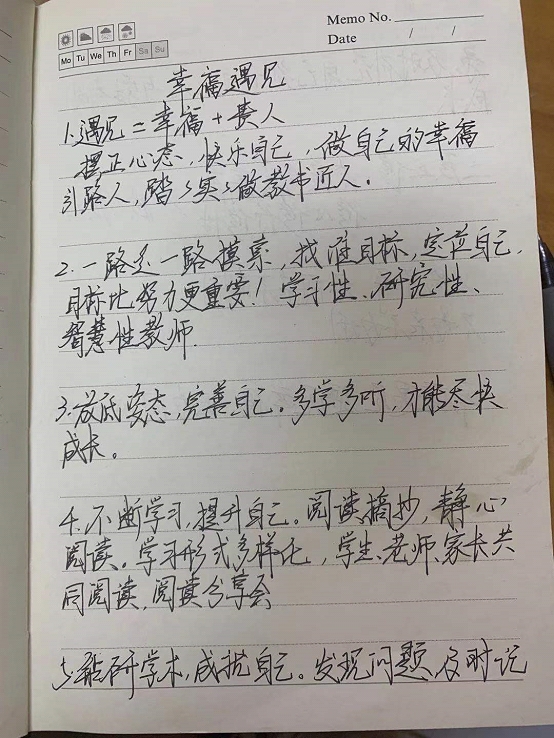 Memo No.
Date / /
Mo Tu We Th Fr Sa Su
幸福遇见
1.遇见=幸福+贵人
摆正心态,快乐自己,做自己的幸福
引路人,踏踏实实做教书匠人。
2.一路走一路摸索,找准目标,定位自己,
目标比努力更重要!学习性、研究性、
智慧性教师.
3.放低姿态,完善自己。多学多听,才能尽快
成长。
4.不断学习,提升自己。阅读摘抄,静心
阅读。学习形式多样化,学生、老师、家长共
同阅读,阅读分享会
5.钻研学术,成就自己。发现问题,及时记